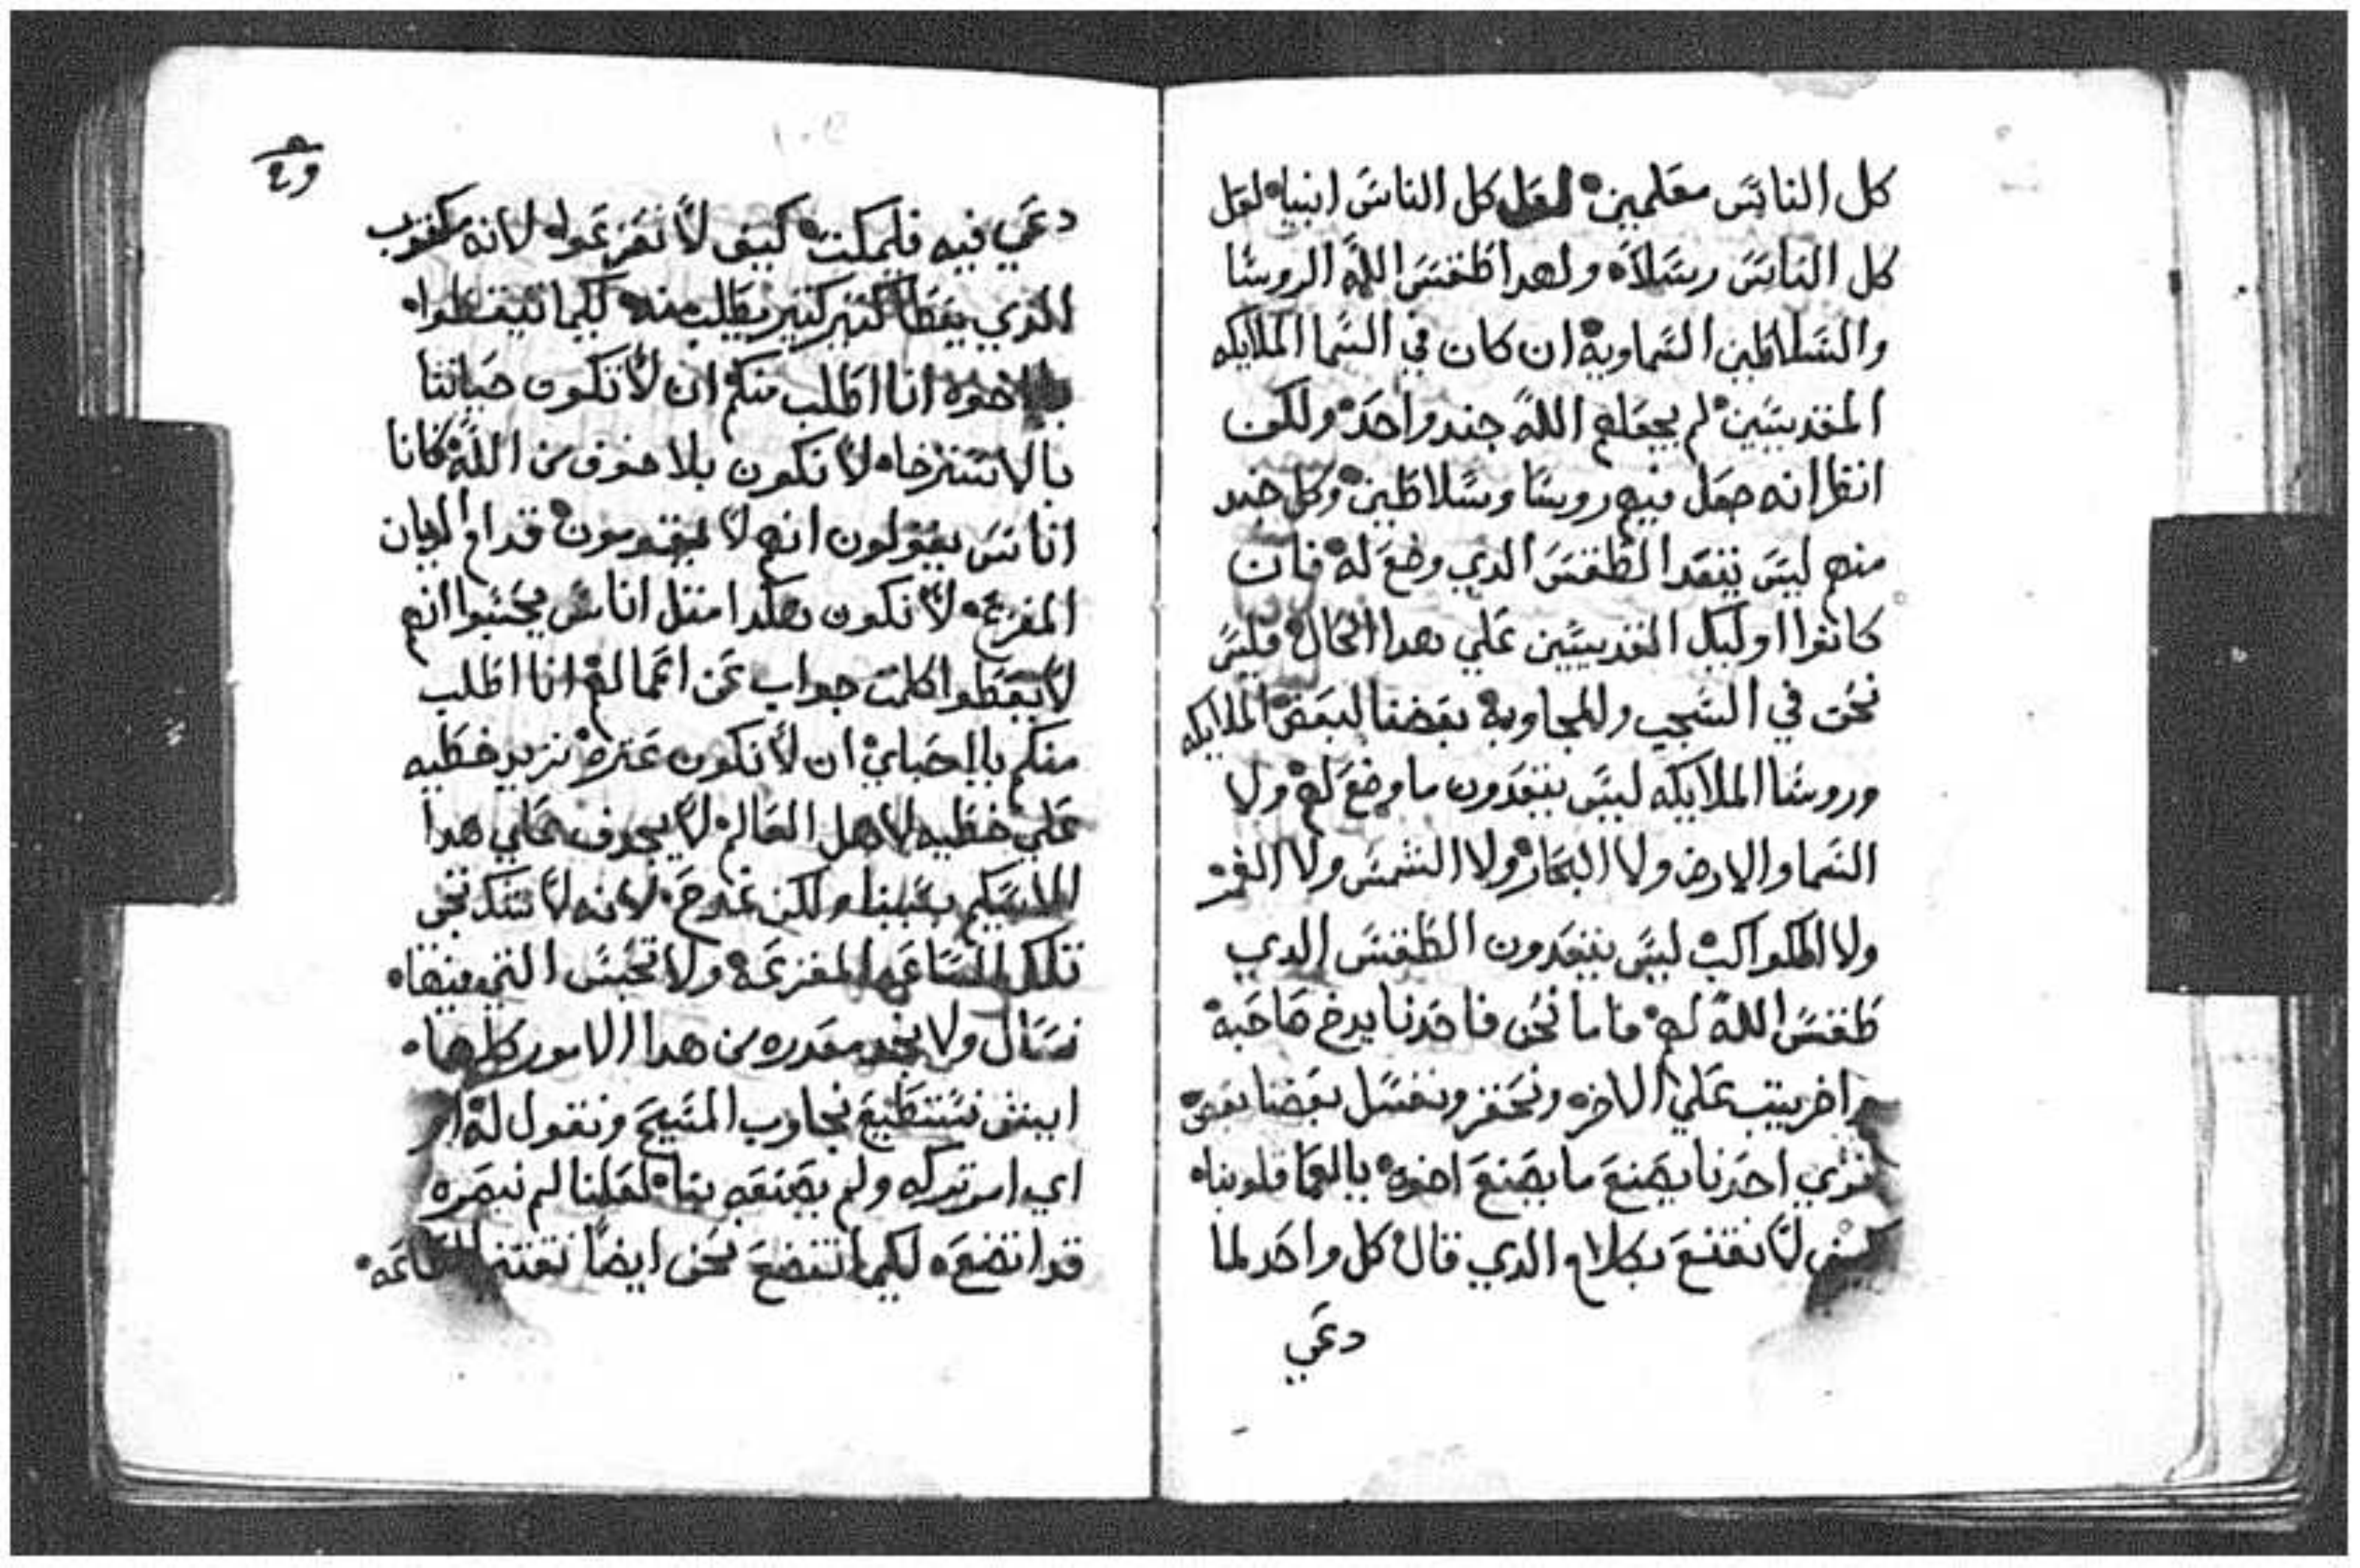 كل الناس معلمين لعل كل الناس انبيا لعل
كل الناس رسلا ولهدا طقس الله الروسا
والسلاطين السماوية ان كان في السما الملايكه
المقديسين لم يجعلهم الله جند واحد ولكن
انظر انه جعل فيهم روسا وسلاطين وكل جند
منهم ليس يتعدا الطقس الدي وضع له فان
كانوا اوليك القديسين علي هدا الحال فليس
نحن في السجس والمجاوبة بعضنا لبعض الملايكه
وروسا الملايكه ليس يتعدون ما وضع لهم ولا
السما والارض ولا البحار ولا الشمس ولا القمر
ولا الكواكب ليس يتعدون الطقس الدي
طقس الله لهم فاما نحن فاحدنا يدخ صاحبه
واخر يتب علي الاخر ونحفز ونفسل بعضنا بعض
نري احدنا يصنع ما يصنع اخوه بالعما قلوبنا
ليس لا نقتنع بكلام الدي قال كل واحد لما
دعي
دعي فيه فليمكت كيف لا نفزعوا لانه مكتوب
الدي يعطا كتير كتير يطلب منه لكيما تتيقظوا
يا اخوه انا اطلب منكم ان لا تكون حياتنا
بالاسترخا لا نكون بلا خوف من الله كانا
اناس يقولون انهم لا يقومون قدام الديان
المفزع لا نكون هكدا متل اناس يحسبوا انهم
لا يعطوا كلمت جواب عن اعمالهم انا اطلب
منكم يا احباي ان لا نكون عترة نزيد خطيه
علي خطيه لاهل العالم لا يجدف علي هدا
الاسكيم بسببنا ولكن نمدح لانه لا نتدكر نحن
تلك الساعه المفزعه ولا الحبس التي فيها
نسال ولا نجد معدره من هدا الامور كلها
ايش نستطيع نجاوب المسيح ونقول له او
اي امر تركه ولم يصنعه بنا لعلنا لم نبصره
قد اتضع لكيما نتضع نحن ايضا نقتني الطاعه